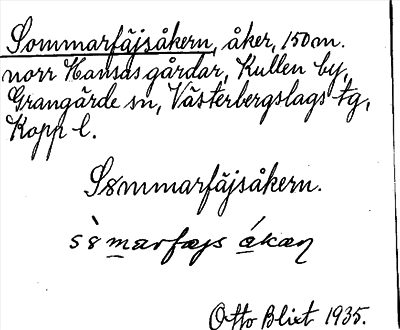 Sommarfäjsåkern, åker, 150 m.
norr Hansasgårdar, Kullen by,
Grangärde sn, Västerbergslags tg,
Kopp l.
S8mmarfäjsåkern.
Otto Blixt 1935.